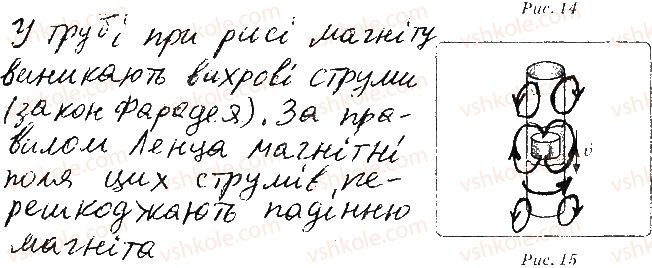 Рис. 14
У трубі при рисі магніту
виникають вихрові струми
(закон Фарадея). За пра-
вилом Ленца магнітні
поля цих струмів пе-
решкоджають падінню
магніта
υ
Рис. 15
vshkole.com